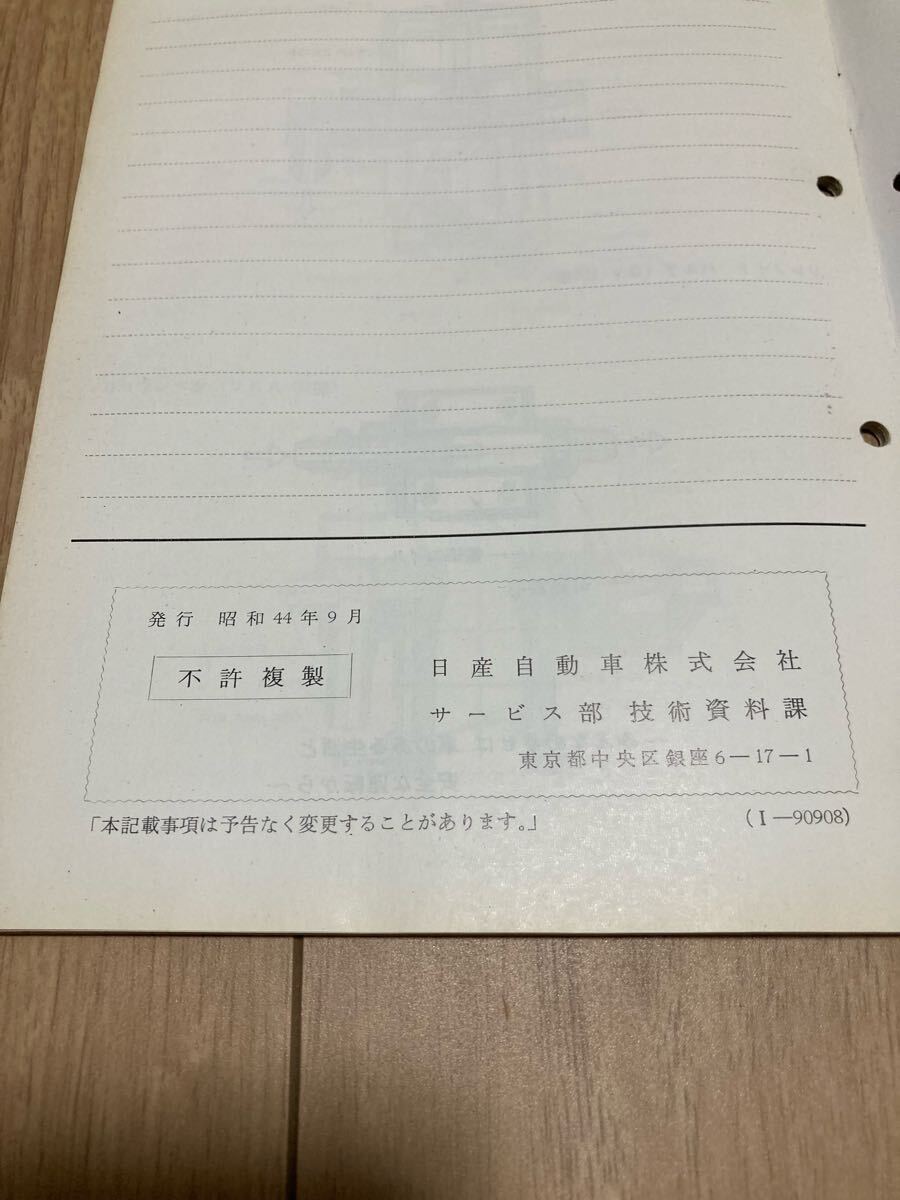 発行 昭和44年9月
不許複製
日産自動車株式会社
サービス部 技術資料課
東京都中央区銀座6−17−1
「本記載事項は予告なく変更することがあります。」
(I—90908)